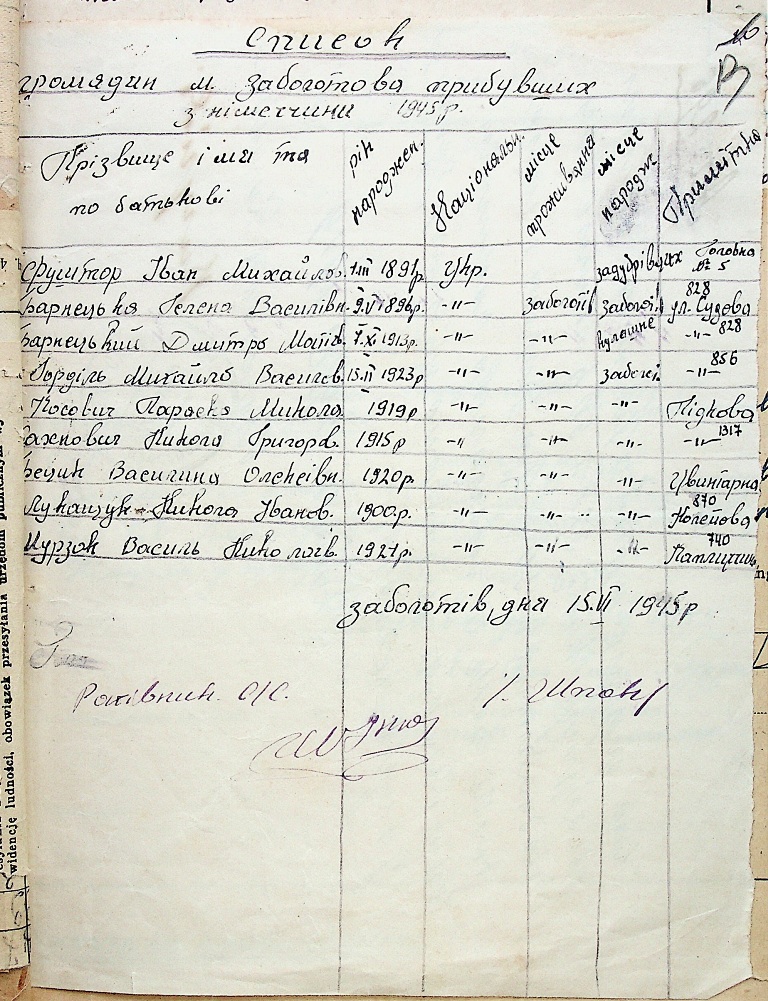 Список
громадян м. Заболотова прибувших
з німеччини 1945р.
Прізвище імя та по батькові рік народжен. Національн. місце проживання місце народж. Примітка
Іван Михайлов. 1.III 1891р Укр. Головна № 5
Барнецька Гелена Василівн. 9.VI 1896р. -"- заболотів заболот. 828 ул. Судова
Барнецький Дмитро 7.XI 1913р. -"- -"- -"- 828
Михайло Васильов. 15.II 1923р -"- -"- заболот. 856 -"-
Косович Параска Микола. 1919р -"- -"- -"- Підкова
Микола Григоров. 1915р -"- -"- -"- 1317 -"-
Василина Олексіївн. 1920р. -"- -"- -"- Цвинтарна
Лукащук Микола Іванов. 1900р. -"- -"- -"- 870 Колейова
Курзак Василь Миколаїв. 1927р. -"- -"- -"- 740
заболотів, дня 15.VI 1945р
Рахівник. С/С.
widencję ludności, obowiązek przesyłania urzędom